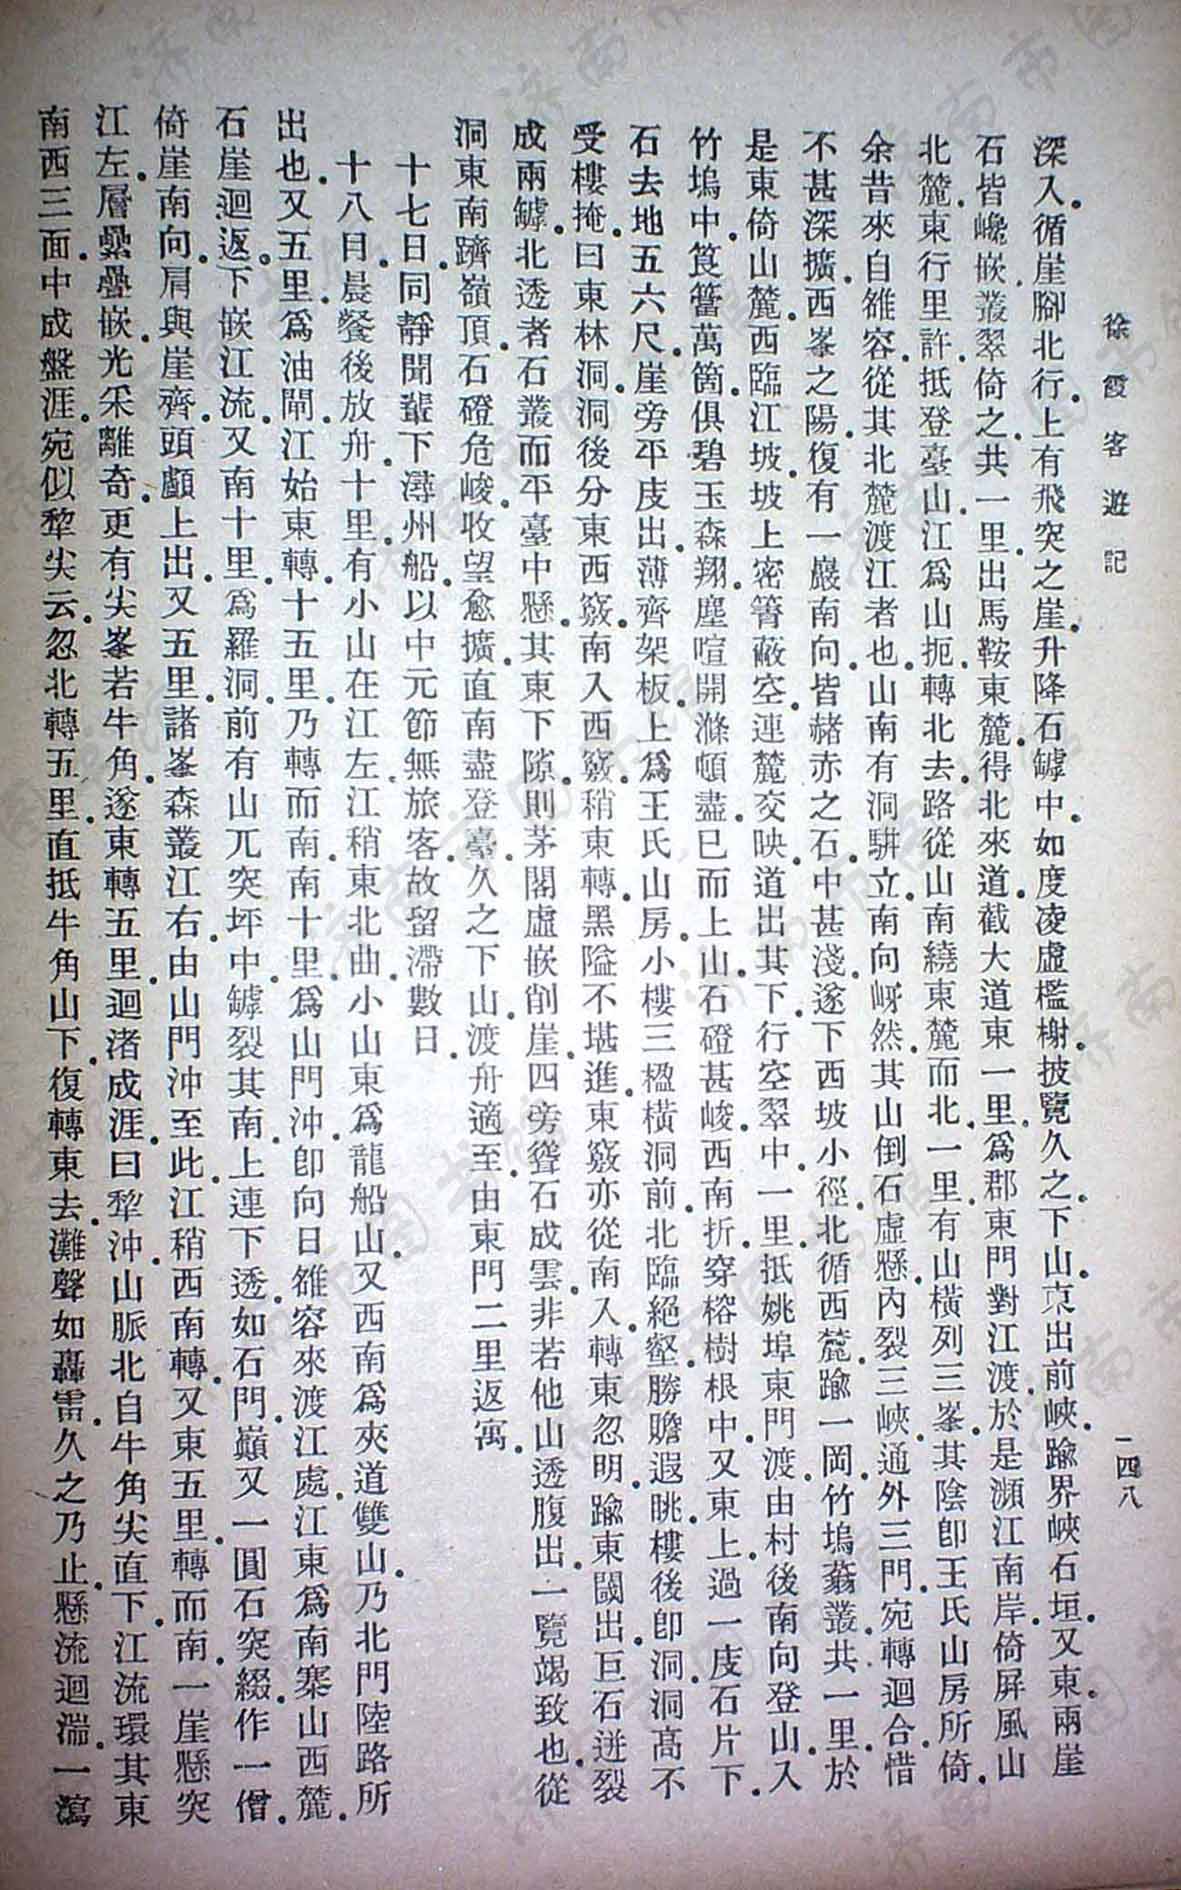 徐霞客遊記
一四八
深入。循崖腳北行。上有飛突之崖。升降石罅中。如度凌虛檻榭。披覽久之。下山。東出前峽。踰界峽石垣。又東兩崖
石皆巉嵌。叢翠倚之。共一里。出馬鞍東麓。得北來道。截大道東一里。爲郡東門對江渡。於是瀕江南岸。倚屏風山
北麓。東行里許。抵登臺山。江爲山扼。轉北去。路從山南繞東麓而北。一里。有山橫列三峯。其陰卽王氏山房所倚。
余昔來自雒容。從其北麓渡江者也。山南有洞駢立。南向岈然。其山倒石虛懸。內裂三峽。通外三門。宛轉迴合。惜
不甚深擴。西峯之陽。復有一巖南向。皆赭赤之石。中甚淺。遂下西坡小徑。北循西麓。踰一岡。竹塢蓊叢。共一里。於
是東倚山麓。西臨江坡。坡上密箐蔽空。連麓交映。道出其下。行空翠中。一里。抵姚埠東門渡。由村後南向登山。入
竹塢中。筤簹萬箇。俱碧玉森翔。塵喧開滌頓盡。已而上山。石磴甚峻。西南折。穿榕樹根中。又東上。過一庋石片下。
石去地五六尺。崖旁平庋出。薄齊架板。上爲王氏山房。小樓三楹。橫洞前。北臨絕壑。勝贍遐眺。樓後卽洞。洞高不
受樓掩。曰東林洞。洞後分東西竅。南入西竅。稍東轉。黑隘不堪進。東竅亦從南入。轉東忽明。踰東閾出。巨石迸裂
成兩罅。北透者石叢而平臺中懸。其東下隙。則茅閣虛嵌。削崖四旁。聳石成雲。非若他山透腹出。一覽竭致也。從
洞東南躋嶺頂。石磴危峻。收望愈擴。直南盡登臺。久之下山。渡舟適至。由東門二里返寓。
十七日。同靜聞輩下潯州船。以中元節無旅客。故留滯數日。
十八日。晨餐後放舟。十里。有小山在江左。江稍東北曲。小山東爲龍船山。又西南爲夾道雙山。乃北門陸路所
出也。又五里。爲油閘。江始東轉。十五里。乃轉而南。南十里。爲山門沖。卽向日雒容來渡江處。江東爲南寨山西麓。
石崖迴返。下嵌江流。又南十里。爲羅洞。前有山兀突坪中。罅裂其南。上連下透。如石門。巓又一圓石突綴。作一僧
倚崖南向。肩與崖齊。頭顱上出。又五里。諸峯森叢江右。由山門沖至此。江稍西南轉。又東五里。轉而南。一崖懸突
江左。層纍疊嵌。光采離奇。更有尖峯若牛角。遂東轉五里。迴渚成涯。曰犂沖。山脈北自牛角尖直下。江流環其東
南西三面。中成盤涯。宛似犂尖云。忽北轉五里。直抵牛角山下。復轉東去。灘聲如轟雷。久之乃止。懸流迴湍。一瀉